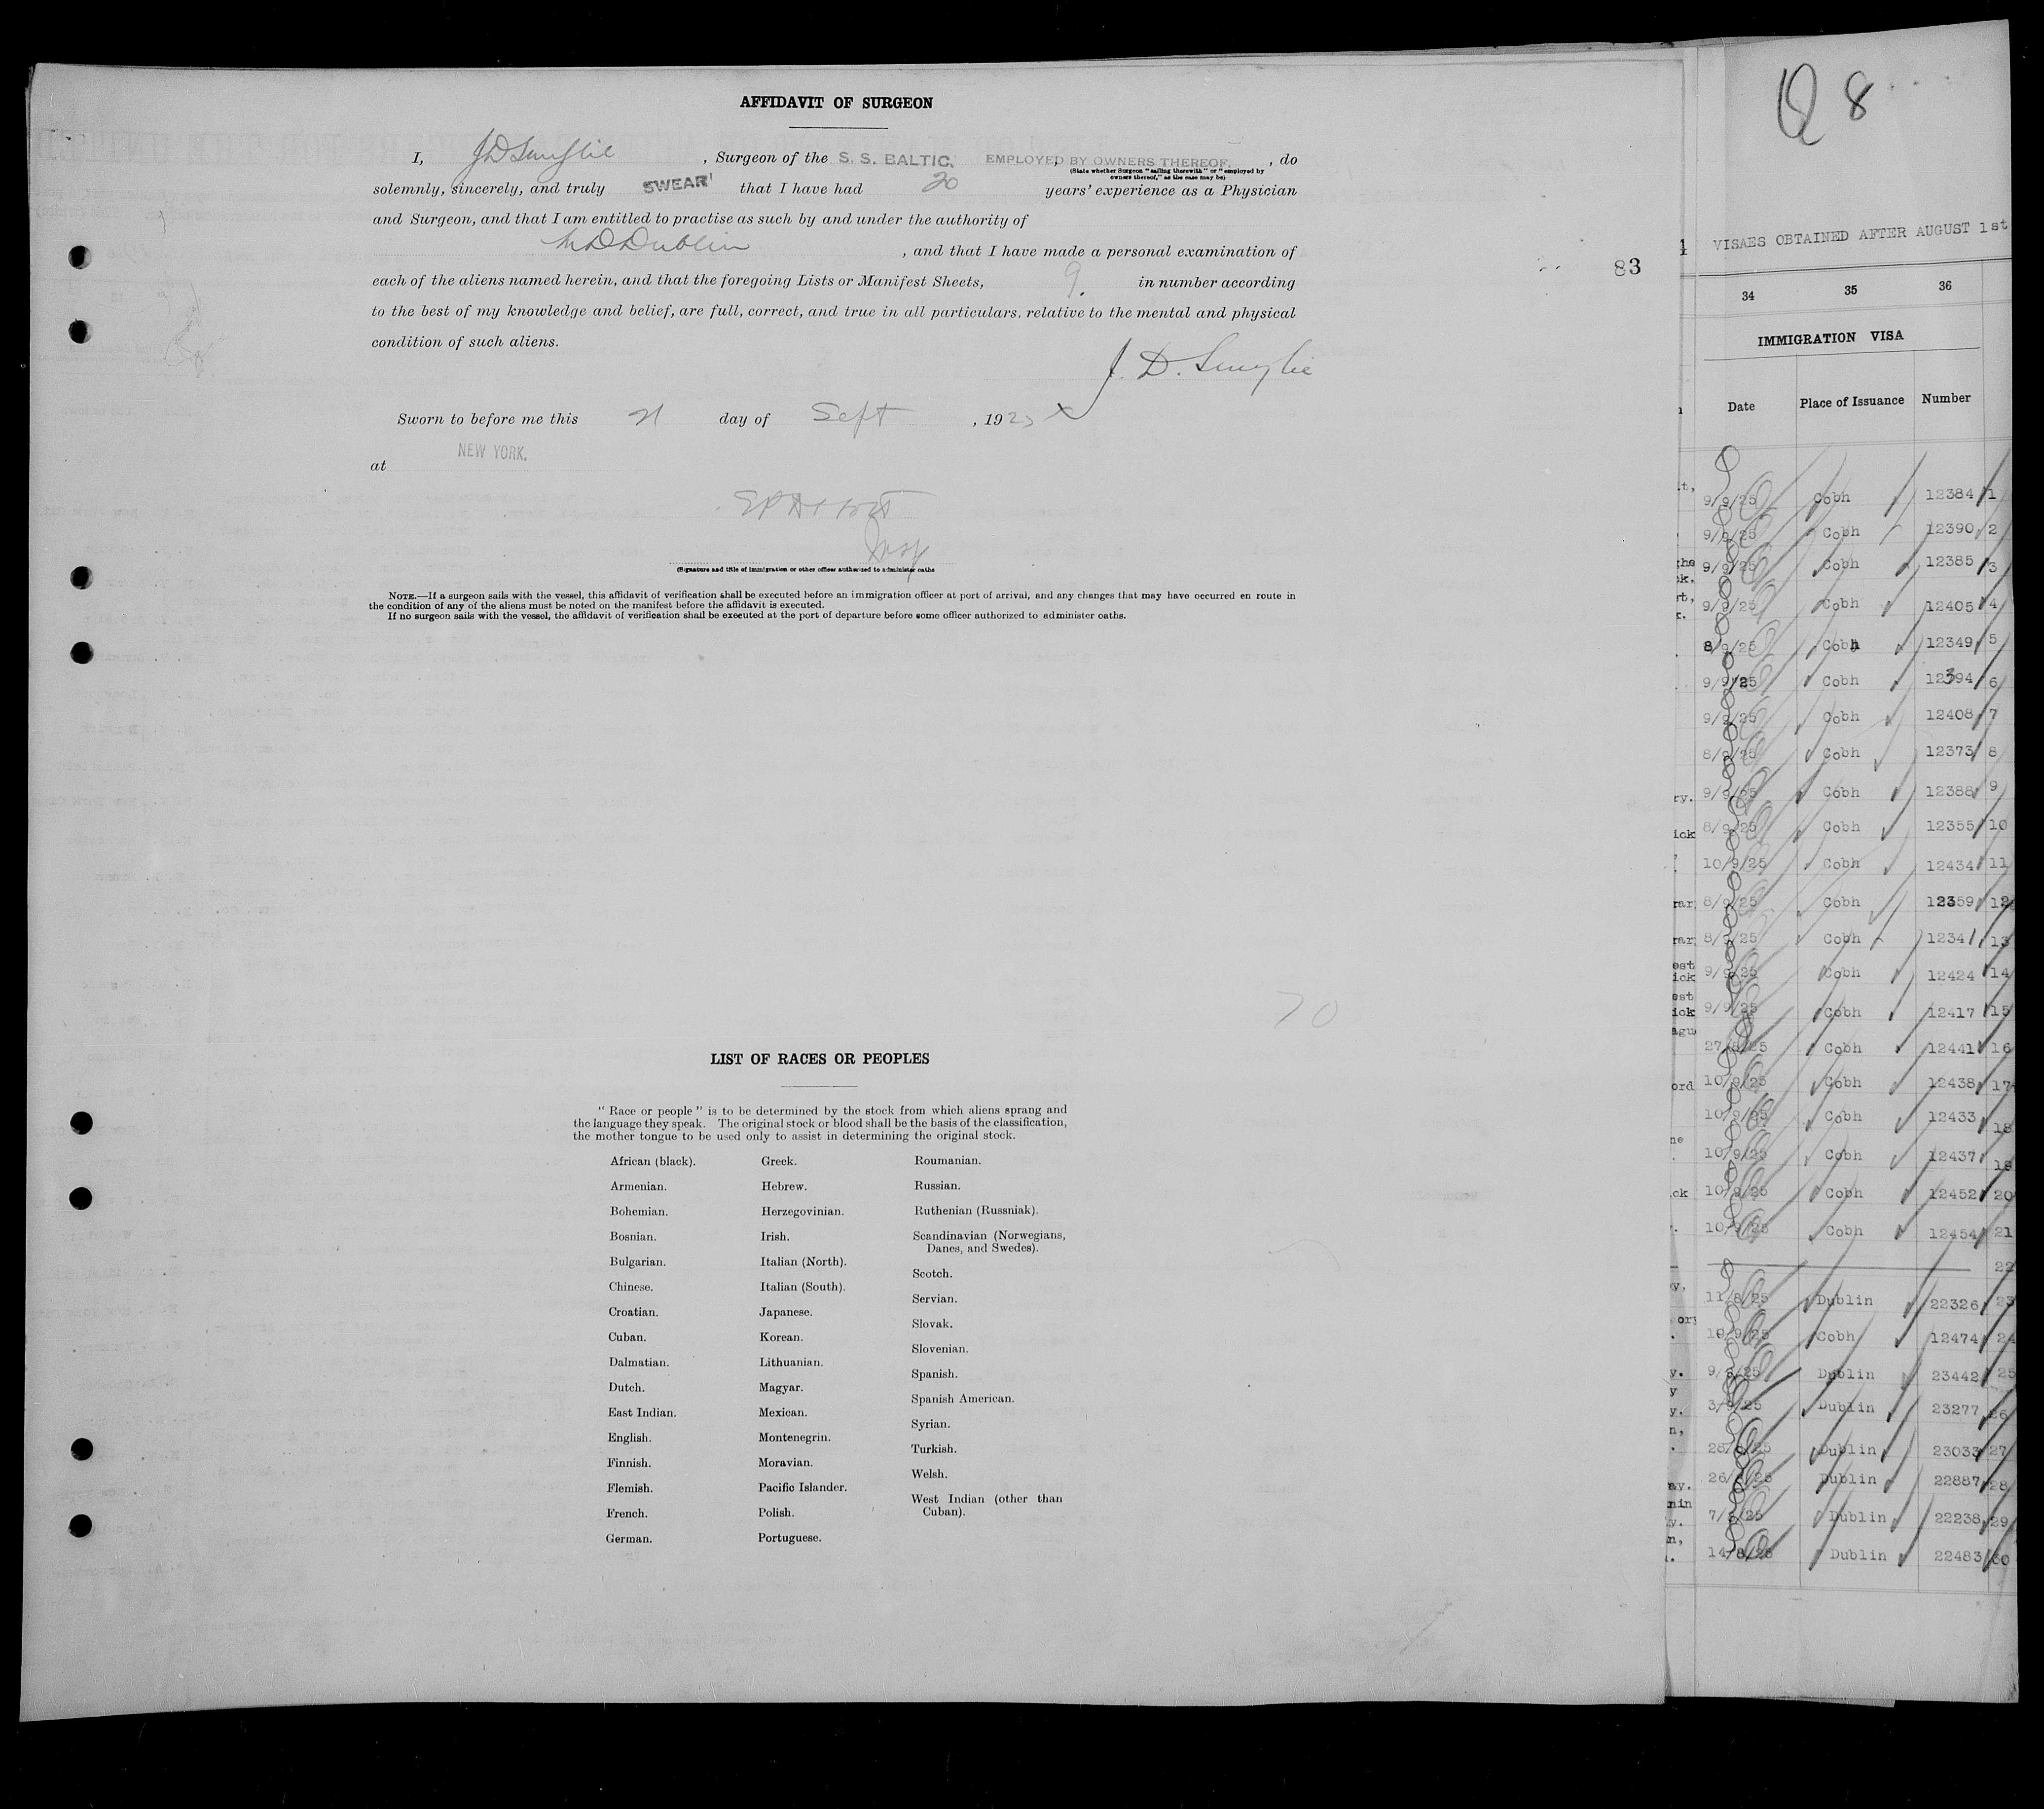 AFFIDAVIT OF SURGEON
I, , Surgeon of the S. S. BALTIC, EMPLOYED BY OWNERS THEREOF. , do
(State whether Surgeon "sailing therewith" or "employed by
owners thereof," as the case may be)
solemnly, sincerely, and truly SWEAR that I have had 20 years' experience as a Physician
and Surgeon, and that I am entitled to practise as such by and under the authority of
MD Dublin , and that I have made a personal examination of
each of the aliens named herein, and that the foregoing Lists or Manifest Sheets, 9. in number according
to the best of my knowledge and belief, are full, correct, and true in all particulars, relative to the mental and physical
condition of such aliens.
J. D.
Sworn to before me this 21 day of Sept , 1925
at NEW YORK.
Insp
(Signature and title of immigration or other officer authorized to administer oaths
NOTE.—If a surgeon sails with the vessel, this affidavit of verification shall be executed before an immigration officer at port of arrival, and any changes that may have occurred en route in
the condition of any of the aliens must be noted on the manifest before the affidavit is executed.
If no surgeon sails with the vessel, the affidavit of verification shall be executed at the port of departure before some officer authorized to administer oaths.
83
70
LIST OF RACES OR PEOPLES
"Race or people" is to be determined by the stock from which aliens sprang and
the language they speak. The original stock or blood shall be the basis of the classification,
the mother tongue to be used only to assist in determining the original stock.
African (black).
Armenian.
Bohemian.
Bosnian.
Bulgarian.
Chinese.
Croatian.
Cuban.
Dalmatian.
Dutch.
East Indian.
English.
Finnish.
Flemish.
French.
German.
Greek.
Hebrew.
Herzegovinian.
Irish.
Italian (North).
Italian (South).
Japanese.
Korean.
Lithuanian.
Magyar.
Mexican.
Montenegrin.
Moravian.
Pacific Islander.
Polish.
Portuguese.
Roumanian.
Russian.
Ruthenian (Russniak).
Scandinavian (Norwegians,
Danes, and Swedes).
Scotch.
Servian.
Slovak.
Slovenian.
Spanish.
Spanish American.
Syrian.
Turkish.
Welsh.
West Indian (other than
Cuban).
8
VISAES OBTAINED AFTER AUGUST 1st
34 35 36
IMMIGRATION VISA
Date Place of Issuance Number
9/9/25 Cobh 12384 1
9/9/25 Cobh 12390 2
9/9/25 Cobh 12385 3
9/9/25 Cobh 12405 4
8/9/25 Cobh 12349 5
9/9/25 Cobh 12394 6
9/9/25 Cobh 12408 7
8/9/25 Cobh 12373 8
9/9/25 Cobh 12388 9
8/9/25 Cobh 12355 10
10/9/25 Cobh 12434 11
8/9/25 Cobh 12359 12
8/9/25 Cobh 12341 13
9/9/25 Cobh 12424 14
9/9/25 Cobh 12417 15
27/8/25 Cobh 12441 16
10/9/25 Cobh 12438 17
10/9/25 Cobh 12433 18
10/9/25 Cobh 12437 19
10/9/25 Cobh 12452 20
10/9/25 Cobh 12454 21
22
11/8/25 Dublin 22326 23
10/9/25 Cobh 12474 24
9/9/25 Dublin 23442 25
3/9/25 Dublin 23277 26
Dublin 23033 27
26/8/25 Dublin 22887 28
7/8/25 Dublin 22238 29
14/8/25 Dublin 22483 30